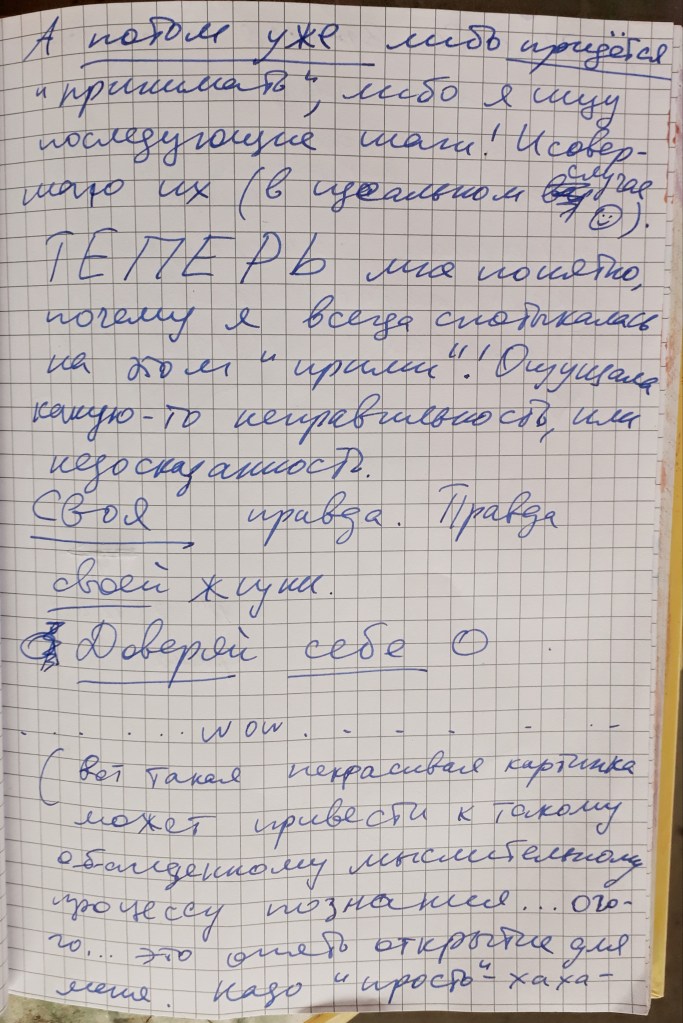 А потом уже либо придётся
"принимать", либо я ищу
последующие шаги! И совер-
шаю их (в идеальном случае
☺).
ТЕПЕРЬ мне понятно,
почему я всегда спотыкалась
на этом "прими"! Ощущала
какую-то неправильность, или
недосказанность.
Своя правда. Правда
своей жизни.
Доверяй себе О
. . . . . . wow . . - - - . - -
(вот такая некрасивая картинка
может привести к такому
обалденному мыслительному
процессу познания... ого-
го... это опять открытие для
меня. Надо "прость" - хаха-